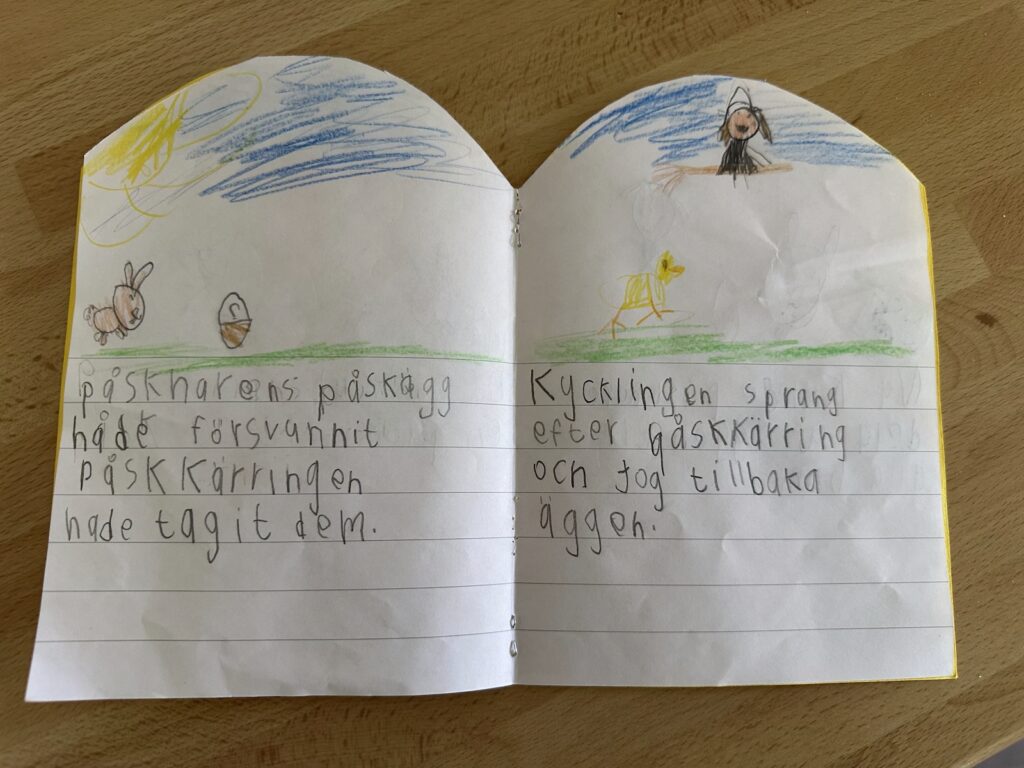 påskharens påskägg
håde försvunnit
påskkärringen
hade tagit dem.
Kycklingen sprang
efter påskkärring
och tog tillbaka
äggen.